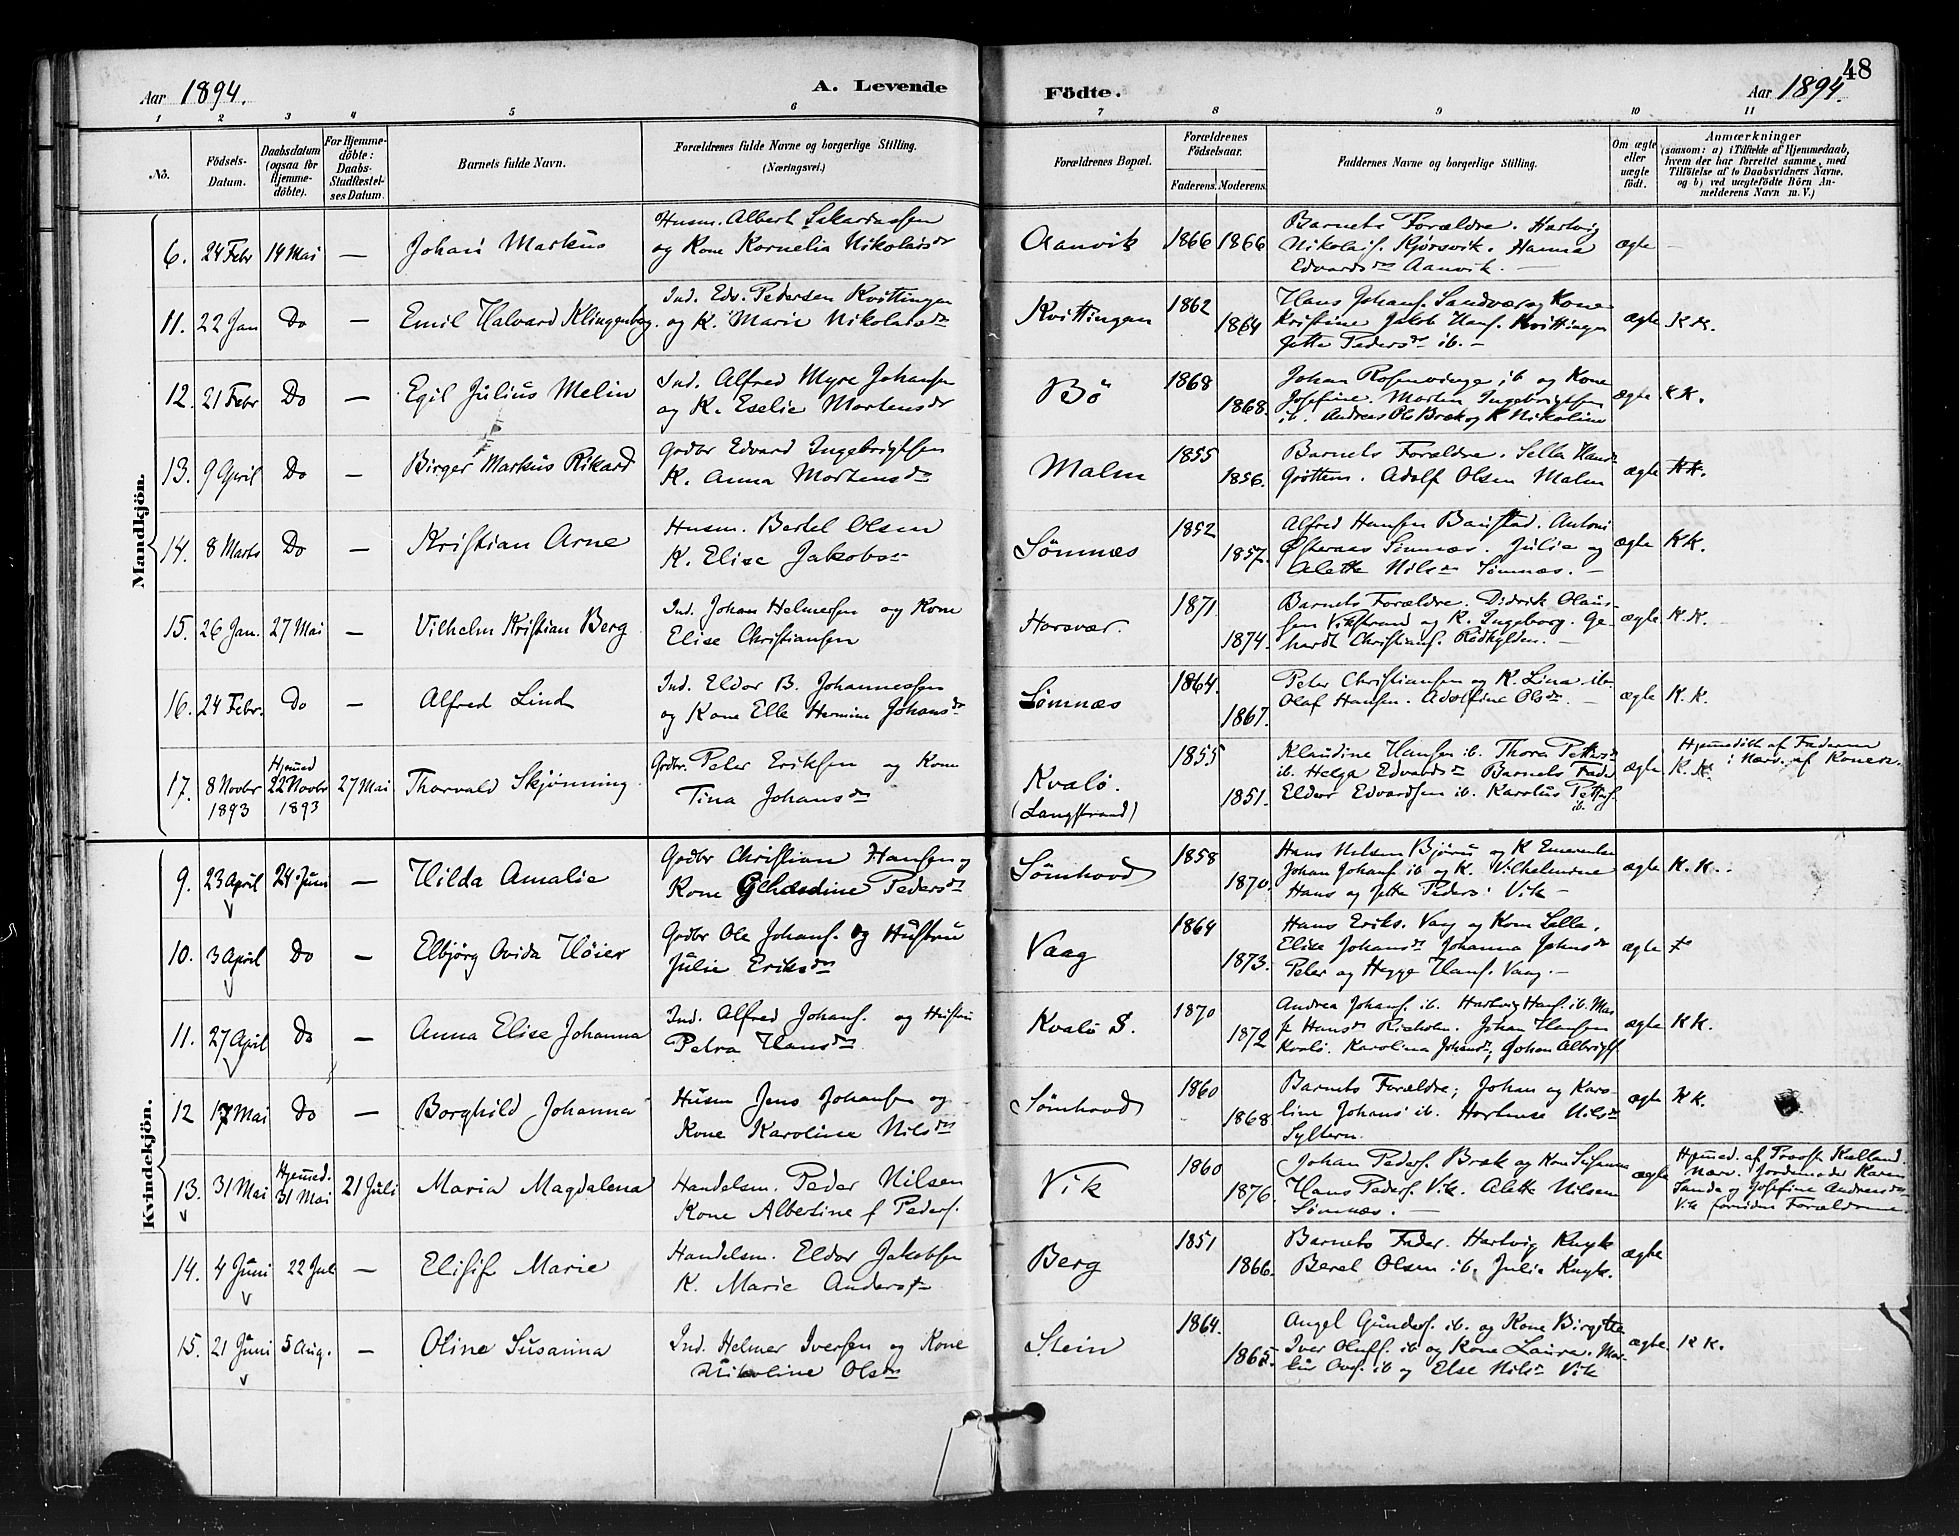 48
Aar 1894. A. Levende Fødte. Aar 1894.
1 2 3 4 5 6 7 8 9 10 11
No. Födsels-Datum. Daabsdatum (ogsaa for Hjemmedöbte). For Hjemmedöbte: Daabs-Stadfæstelses Datum. Barnets fulde Navn. Forældrenes fulde Navne og borgerlige Stilling. (Næringsvei.) Forældrenes Bopæl. Forældrenes Födselsaar. Faderens. Moderens. Faddernes Navne og borgerlige Stilling. Om ægte eller uægte födt. Anmærkninger (saasom: a) i Tilfælde af Hjemmedaab, hvem der har forrettet samme, med Tilföielse af to Daabsvidners Navne, og b) ved uægtefödte Börn Anmelderens Navn m. V.)
Mandkjön.
6. 24 Febr 14 Mai — Johan Markus
Husm. Albert Sakariassen
og Kone Kornelia Nikolaisdr
Aanvik 1866 1866
Barnets Forældre. Hartvig
Nikolais. Kjørsvik. Hanna
Edvardsdr Aanvik. —
ægte —
11. 22 Jan Do — Emil Halvard Klingenberg.
Ind. Edv. Pedersen Kvittingen
og K. Marie Nikolaisdr
Kvittingen 1862 1864
Hans Johans. Sandvær og Kone
Kristine Jakob Hans. Kvittingen
Jette Pedersdr ib. —
ægte K.K.
12. 21 Febr Do — Egil Julius Melin
Ind. Alfred Myre Johansen
og K. Eselie Mortensdr
Bö 1868 1868.
Johan Rosenvinge ib og Kone
Josefine. Morten Ingebrigtsen
ib. Andreas Ols Bræk og K Nikoline
ægte K.K.
13. 9 April Do — Birger Markus Rikard
Gaardbr Edvard Ingebrigtsen
K. Anna Mortensdr
Malm 1855 1856.
Barnets Forældre. Sella Hansdr
Grøttem. Adolf Olsen Malm
ægte K.K.
14. 8 Marts Do — Kristian Arne
Husm. Bertel Olsen
K. Elise Jakobsdr
Sömnæs 1852 1857.
Alfred Hansen Baustad. Antoni
Østeraas Sömnæs. Julie og
Alette Nilsdr Sömnæs. —
ægte K K.
15. 26 Jan. 27 Mai — Vilhelm Kristian Berg
Ind. Johan Helmersen og Kone
Elise Christiansen
Horsvær. 1871. 1874.
Barnets Forældre. Didrik Olaus-
sen Vikstrand og K. Ingeborg. Ge-
hardt Christians. Rödhylden. —
ægte K.K.
16. 24 Febr. Do — Alfred Lind
Ind. Eldor B. Johannessen
og Kone Elle Hermine Johansdr
Sömnæs 1864. 1867.
Peter Christiansen og K. Lina ib.
Olaf Hansen. Adolfine Olsdr. —
ægte K.K.
17. 8 Novbr 1893 Hjemmed 22 Novbr 1893 27 Mai Thorvald Skjönning
Grdbr. Peter Eriksen og Kone
Tina Johansdr
Kvalö. (Langstrand) 1855 1851.
Klaudine Hansen ib. Thora Pettersdr
ib. Helga Edvardsdr Barnets Fader
Eldor Edvardsen ib. Karolus Petters. ib.
ægte K.K. Hjemmedöbt af Faderen
i Nærv. af Konen.
Kvindekjön.
9. 23 April 24 Juni — Hilda Amalie
Grdbr Christian Hansen og
Kone Gehardine Pedersdr
Sömhovd 1858 1870.
Hans Nilsen Bjøru og K Emerentse
Johan Johans. ib og K. Vilhelmine
Hans og Jette Peders. Vik —
ægte K.K.
10. 3 April Do — Elbjörg Ovida Höier
Grdbr Ole Johans. og Hustru
Julie Eriksdr
Vaag 1864 1873.
Hans Eriks. Vaag og Kone Sella.
Elise Johansdr Johanna Johnsdr
Peter og Hegge Hans. Vaag. —
ægte
11. 27 April Do — Anna Elise Johanna
Ind. Alfred Johans. og Hustru
Petra Hansdr
Kvalö S. 1870 1872
Andrea Johans. ib. Hartvig Hans. ib. Mar-
Hansdr Risholm. Johan Hansen
Kvalö. Karolina Johansdr, Johan Albrigts.
ægte K K.
12 17 Mai Do — Borghild Johanna
Husm Jens Johansen og
Kone Karoline Nilsdr
Sömhovd 1860 1868
Barnets Forældre; Johan og Karo-
line Johans ib. Hortense Nilsdr
Syltern.
ægte K K.
13. 31 Mai Hjemmed. 31 Mai 21 Juli Maria Magdalena
Handelsm. Peder Nilsen
Kone Albertine f Peders.
Vik 1860 1876.
Johan Peders. Bræk og Kone Susanna
Hans Peders. Vik. Alette Nilsen
Sömnæs. —
ægte Hjemmed. af Provst Kielland.
Nærv. Jordemoder Karen
Sande og Josefine Andreasdr
Vik foruden Forældrene.
14. 4 Juni 22 Jul — Elisif Marie
Handelsm. Eldor Jakobsen
K. Marie Andersdr
Berg 1851 1866.
Barnets Fader. Hartvig Knyk
Beret Olsen ib. Julie Knyk.
ægte
15. 21 Juni 5 Aug. — Oline Susanna
Ind. Helmer Iversen og Kone
Nikoline Olsdr
Stein 1864. 1865.
Angel Gunders. ib. og Kone Birgitte
Iver Olufs. ib og Kone Laura. Mar-
ib og Else Nilsdr Vik
ægte K K.